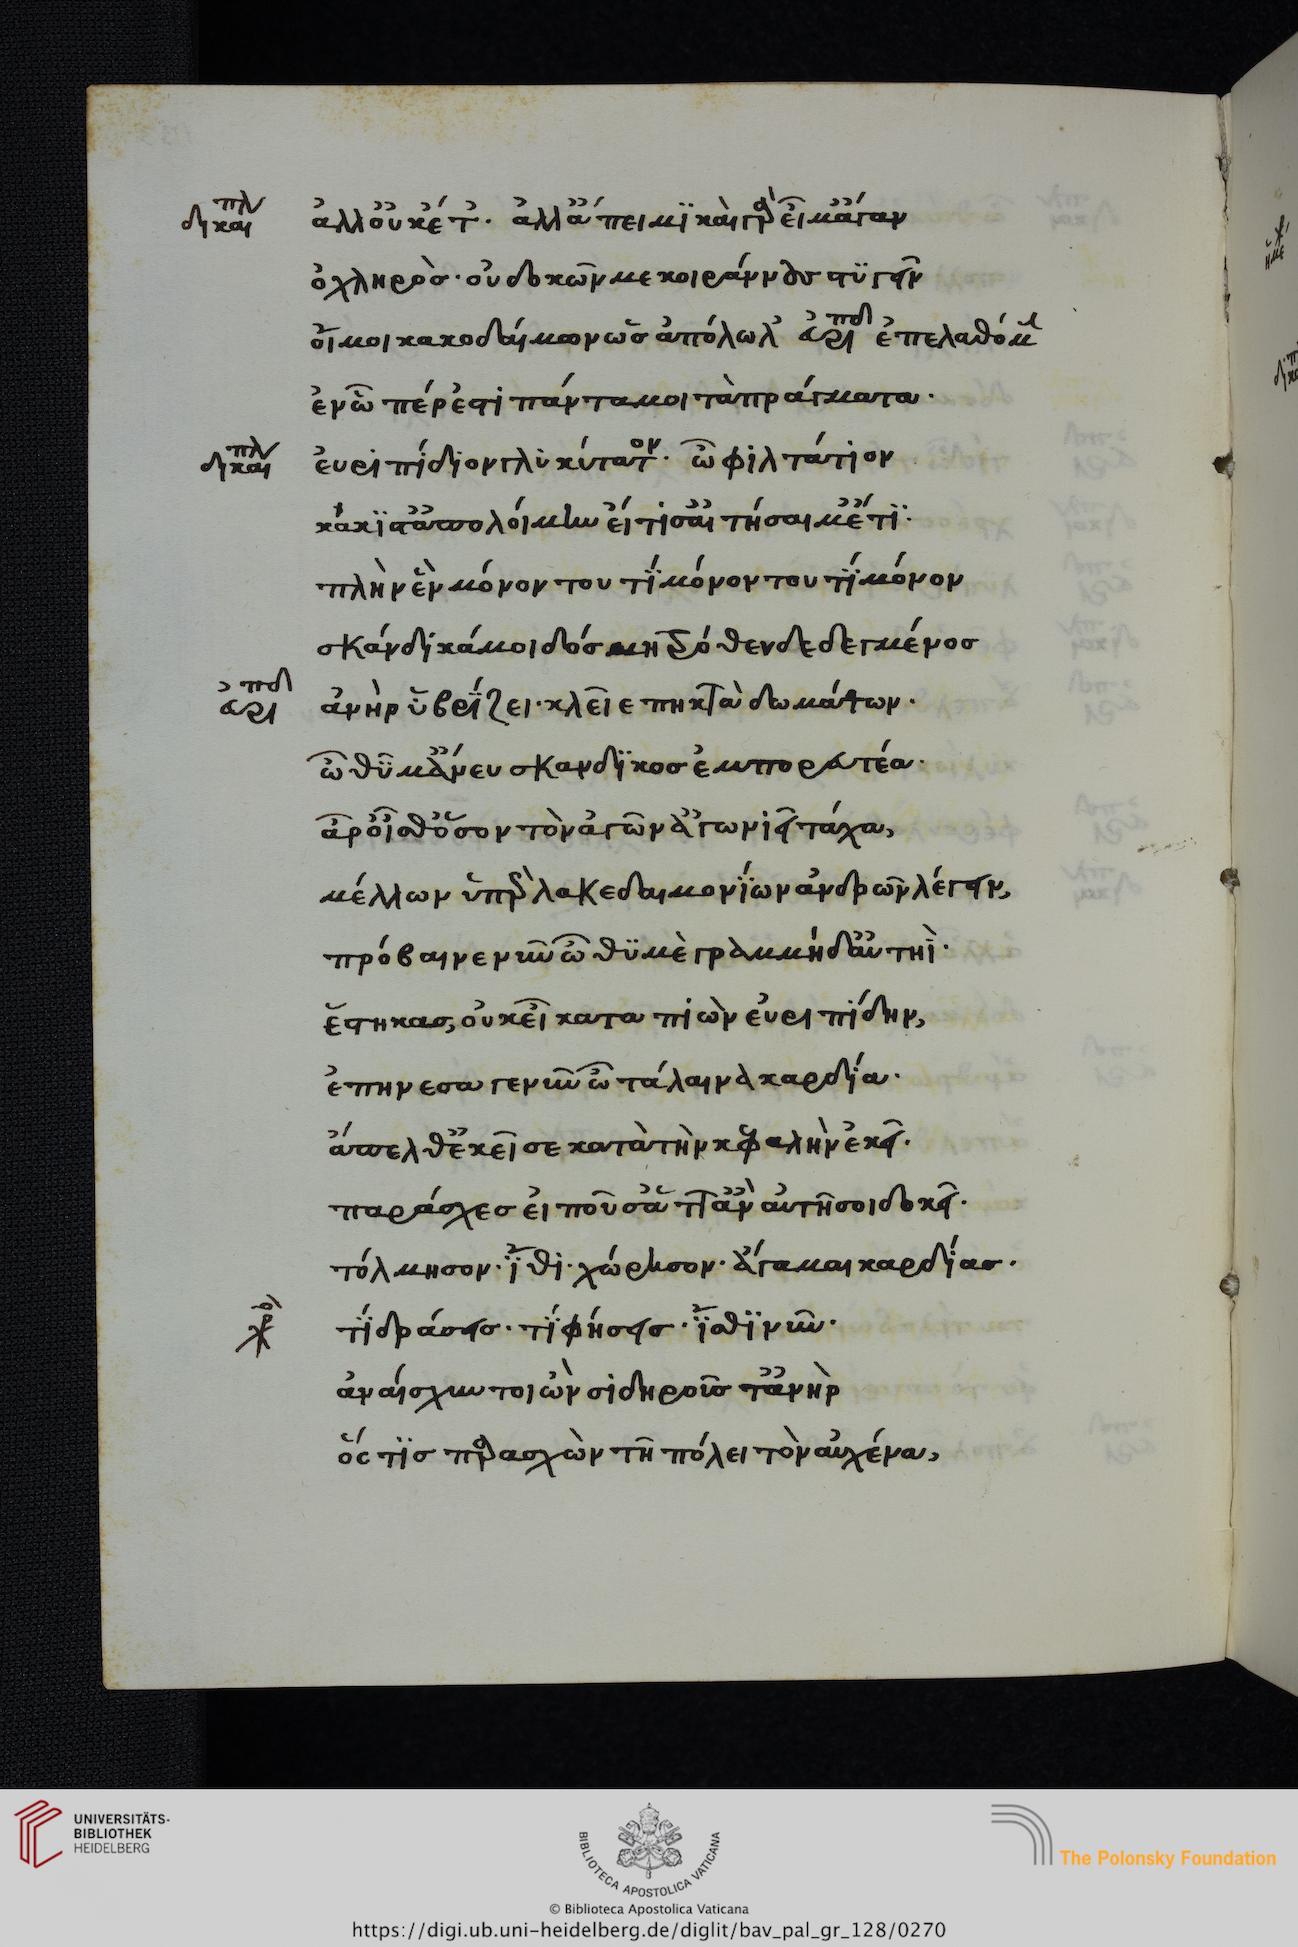 δικαι πλ ἀλλ οὐκέτ. ἀλλ ἄπειμι καὶ γάρ εἰμ ἄγαν
ὀχληρὸς. οὐ δοκῶν με κοιράννους στυγεῖν
οἴμοι κακοδαίμων ὡς ἀπόλωλ εὐριπδ ἐπελαθόμην
ἐν ᾧ πέρ ἐστι πάντα μοι τὰ πράγματα.
δικαι πλ ἐυριπίδιον γλυκύτατον. ὦ φιλτάτιον
κάκιστ ἀπολοίμην εἴ τι σ αἰτήσαιμ ἔτι.
πλὴν ἓν μόνον του τί μόνον του τί μόνον
σκάνδικά μοι δός μητρόθεν δεδεγμένος
εὐριπδ ἀνὴρ ὑβρίζει. κλεῖε πηκτὰ δωμάτων.
ὦ θῦμ ἄνευ σκάνδικος ἐμπορευτέα.
ἆρ οἶσθ ὅσον τὸν ἀγῶν ἀγωνιεῖ τάχα,
μέλλων ὑπὲρ λακεδαιμονίων ἀνδρῶν λέγειν,
πρόβαινε νῦν ὦ θυμὲ γραμμή δ αὑτηὶ.
ἕστηκας, οὐκ εἶ καταπιὼν εὐριπίδην,
ἐπήνεσα γε νῦν ὦ τάλαινα καρδία.
ἄπελθ ἐκεῖσε κατὰ τὴν κεφαλὴν ἐκεῖ.
παράσχες εἰποῦσ ἅττ ἂν αὐτῆ σοι δοκεῖ.
τόλμησον. ἴθι. χώρησον. ἄγαμαι καρδίας.
χορ τί δράσεις. τί φήσεις. ἴσθι νῦν.
ἀναίσχυντοι ὢν σιδηροῖς τ ἀνὴρ
ὅς τις παρασχὼν τῆ πόλει τὸν αὐχένα,
UNIVERSITÄTS-
BIBLIOTHEK
HEIDELBERG
BIBLIOTECA APOSTOLICA VATICANA
The Polonsky Foundation
© Biblioteca Apostolica Vaticana
https://digi.ub.uni-heidelberg.de/diglit/bav_pal_gr_128/0270